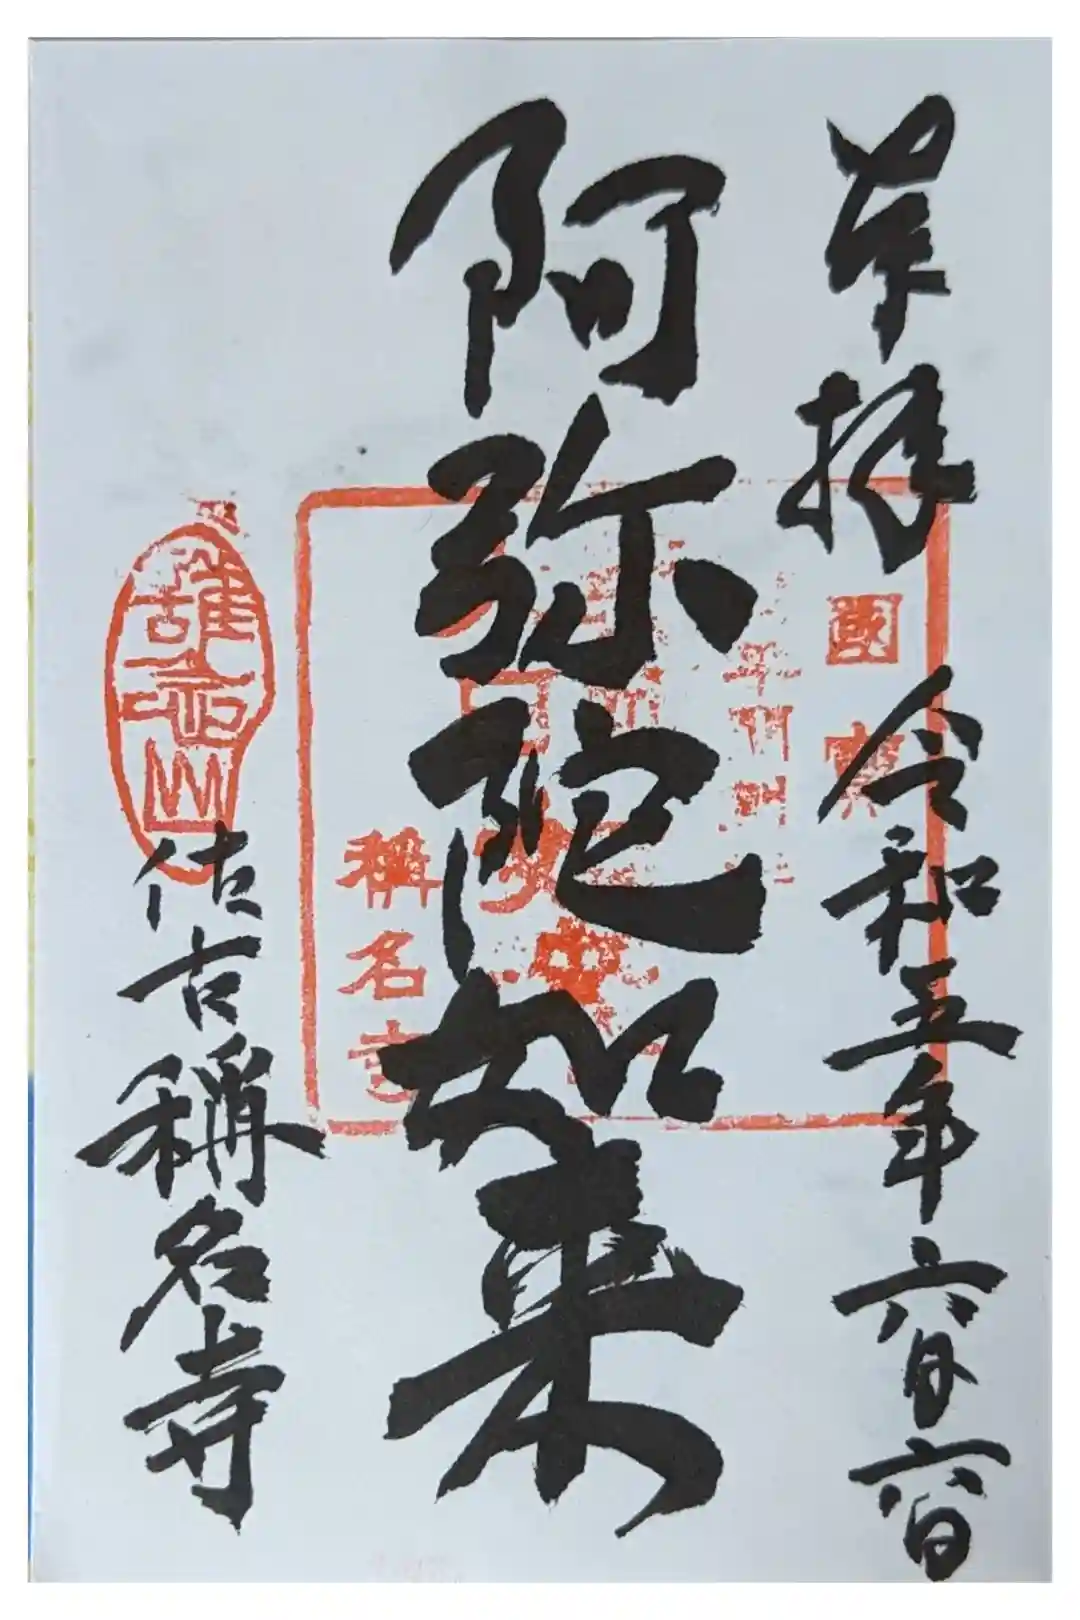 奉拝 令和五年六月六日
國寳
阿弥陀如来
稱名寺
雄古山
佐古稱名寺